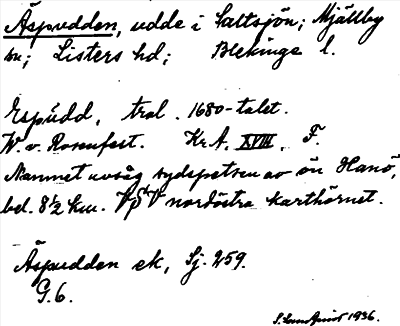 Äspudden, udde i Saltsjön; Mjällby
sn; Listers hd; Blekinge l.
Espúdd, trol. 1680-talet.
W. v. Rosenfest. Kr. A. XVIII, F.
Namnet avsåg sydspetsen av ön Hanö,
bel. 8½ km. nordöstra karthörnet.
Äspudden ek, Sj. 259.
G. 6.
1936.